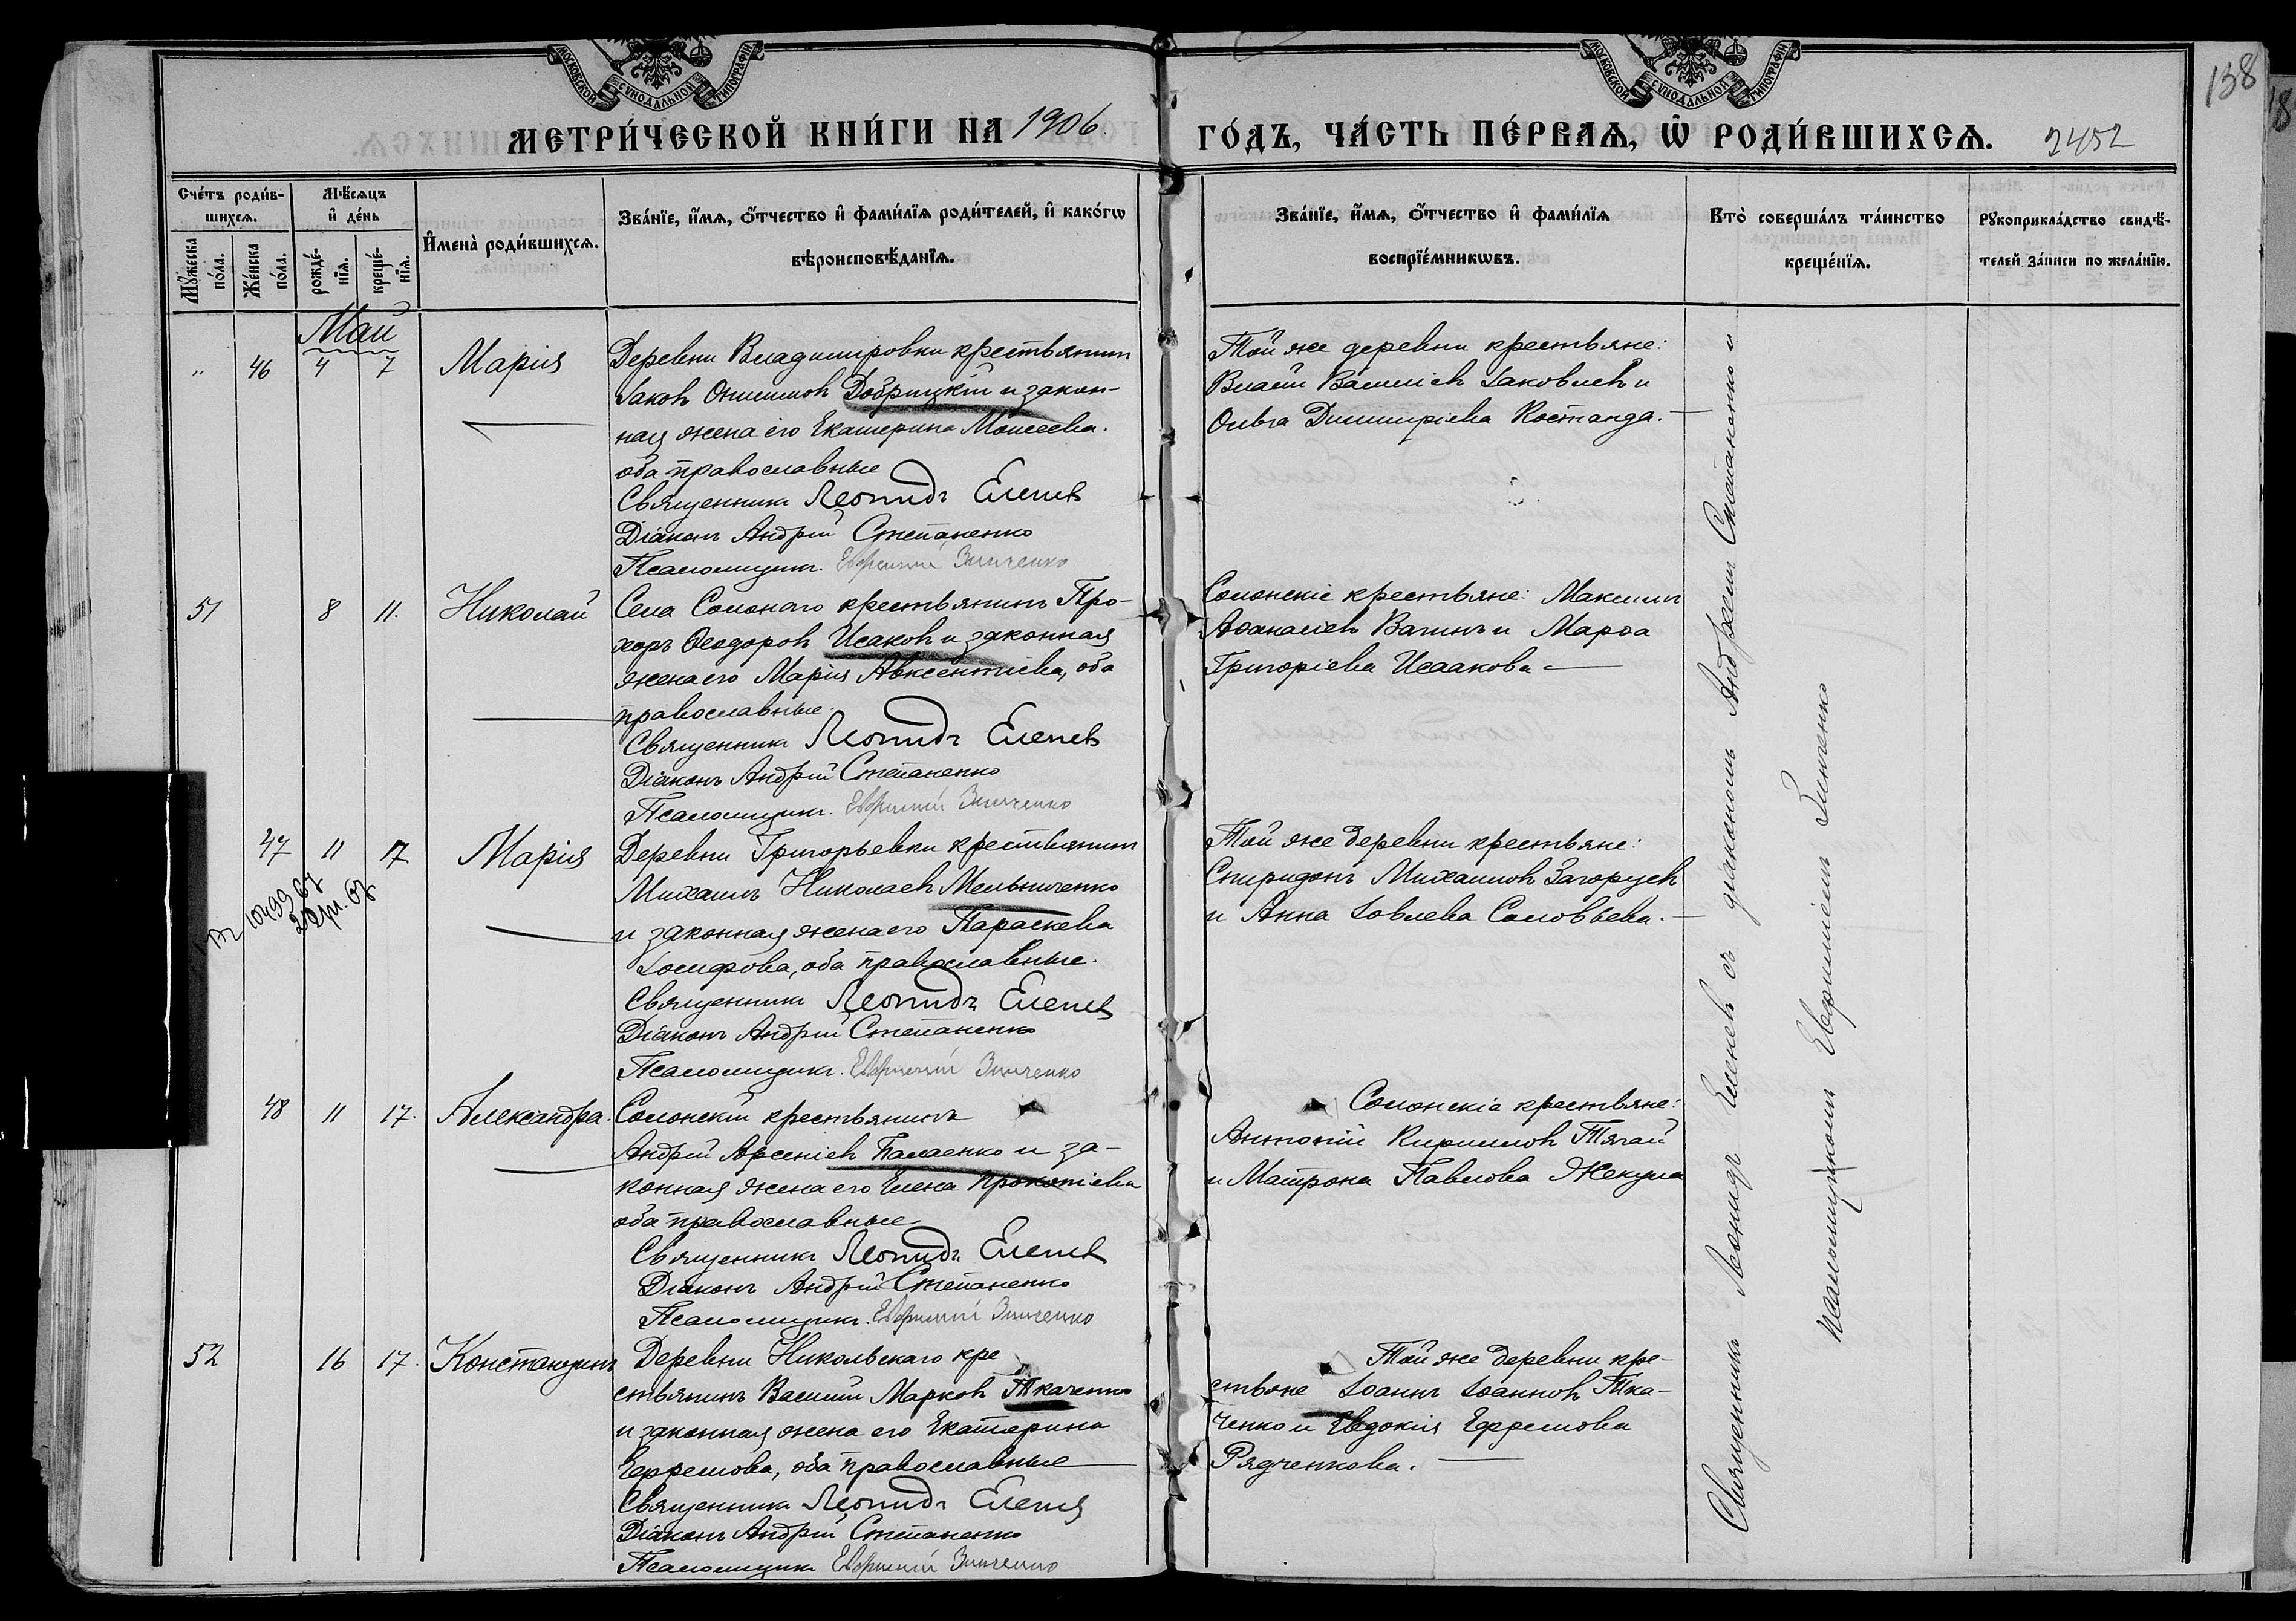 МОСКОВСКОЙ СѴНОДАЛЬНОЙ ТИПОГРАФІИ
МОСКОВСКОЙ СѴНОДАЛЬНОЙ ТИПОГРАФІИ
138
МЕТРИ́ЧЕСКОЙ КНИ́ГИ НА 1906 ГО́ДЪ, ЧА́СТЬ ПЕ́РВАѦ, Ѡ҆ РОДИ́ВШИХСѦ. 2452
Сче́тъ роди́в-
шихсѧ.
Мꙋ́жеска по́ла.
Же́нска по́ла.
Мѣ́сѧцъ
и҆ де́нь
рожде́-
нїѧ.
креще́-
нїѧ.
И҆мена̀ роди́вшихсѧ.
Зва́нїе, и҆́мѧ, ѻ҆́тчество и҆ фами́лїѧ роди́телей, и҆ како́гѡ
вѣроисповѣ́данїѧ.
Зва́нїе, и҆́мѧ, ѻ҆́тчество и҆ фами́лїѧ
воспрїе́мникѡвъ.
Кто̀ соверша́лъ та́инство
креще́нїѧ.
Рꙋкоприкла́дство свидѣ́-
телей за́писи по жела́нїю.
Май
" 46 4 7 Марія
Деревни Владимировки крестьянинъ
Іаковъ Онисимовъ Добрицкій и закон-
ная жена его Екатерина Моисеева.
оба православные
Священникъ Леонидъ Еленевъ
Діаконъ Андрей Степаненко
Псаломщикъ Евфимій Зинченко
Той же деревни крестьяне:
Власій Васильевъ Іаковлевъ и
Ольга Димитріева Костанда.
51 8 11. Николай
Села Солонаго крестьянинъ Про-
хоръ Ѳеодоровъ Исаковъ и законная
жена его Марія Авксентіева, оба
православные.
Священникъ Леонидъ Еленевъ
Діаконъ Андрей Степаненко
Псаломщикъ Евфимій Зинченко
Солонскіе крестьяне: Максимъ
Аѳанасіевъ Вагинъ и Марѳа
Григоріева Исаакова
47 11 17 Марія
Деревни Григорьевки крестьянинъ
Михаилъ Николаевъ Мельниченко
и законная жена его Параскева
Іосифова, оба православные.
Священникъ Леонидъ Еленевъ
Діаконъ Андрей Степаненко
Псаломщикъ Евфимій Зинченко
Той же деревни крестьяне:
Спиридонъ Михаиловъ Загоруевъ
и Анна Іовлева Соловьева.
48 11 17. Александра.
Солонскій крестьянинъ
Андрей Арсеніевъ Палаенко и за-
конная жена его Елена Прокопіева
оба православные
Священникъ Леонидъ Еленевъ
Діаконъ Андрей Степаненко
Псаломщикъ Евфимій Зинченко
Солонскіе крестьяне:
Антоній Кирилловъ Тягай
и Матрона Павлова Жекула
52 16 17. Константинъ
Деревни Никольскаго кре
стьянинъ Василій Марковъ Ткаченко
и законная жена его Екатерина
Ефремова, оба православные
Священникъ Леонидъ Еленевъ
Діаконъ Андрей Степаненко
Псаломщикъ Евфимій Зинченко
Той же деревни кре-
стьяне Іоаннъ Іоанновъ Тка-
ченко и Евдокія Ефремова
Рядченкова.
Священникъ Леонидъ Еленевъ съ діакономъ Андреемъ Степаненко и
псаломщикомъ Евфиміемъ Зинченко